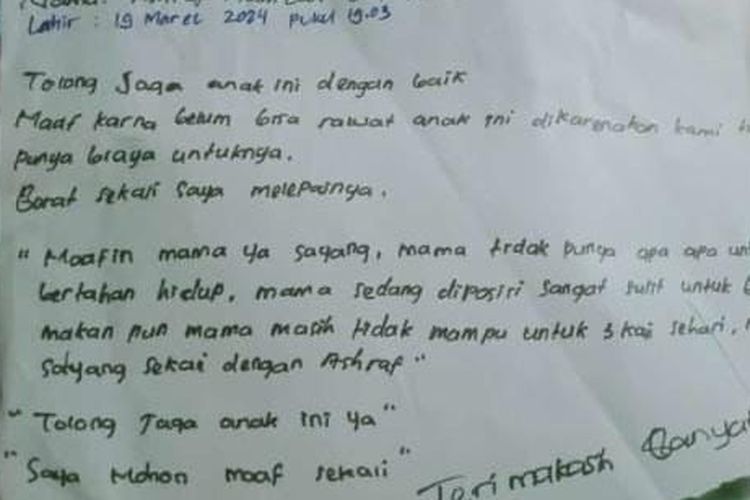 Lahir : 19 Maret 2024 pukul 19.03
Tolong Jaga anak ini dengan baik
Maaf karna belum bisa rawat anak ini dikarenakan kami
punya biaya untuknya.
Barat sekali saya melepasnya.
" Maafin mama ya sayang, mama tidak punya apa apa
bertahan hidup, mama sedang diposisi sangat sulit untuk
makan pun mama masih tidak mampu untuk 3 kai sehari,
Sayang sekai dengan Ashraf "
" Tolong Jaga anak ini ya "
" Saya Mohon maaf sekali "
Terimakasih Banyak